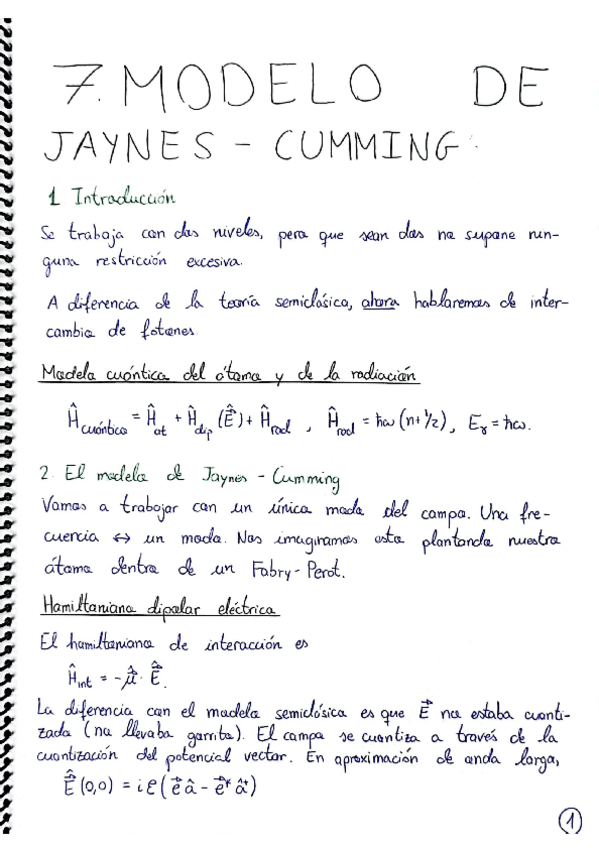 7. MODELO DE
JAYNES - CUMMING
1 Introducción
Se trabaja con dos niveles, pero que sean dos no supone nin-
guna restricción excesiva.
A diferencia de la teoría semiclásica, ahora hablaremos de inter-
cambio de fotones
Modelo cuántico del átomo y de la radiación
Ĥ_cuántico = Ĥ_at + Ĥ_dip (Ê⃗) + Ĥ_rad , Ĥ_rad = ħω (n+1/2), E_γ = ħω.
2. El modelo de Jaynes - Cumming
Vamos a trabajar con un único modo del campo. Una fre-
cuencia ↔ un modo. Nos imaginamos esto plantando nuestro
átomo dentro de un Fabry-Perot.
Hamiltoniano dipolar eléctrico
El hamiltoniano de interacción es
Ĥ_int = - μ̂⃗ · Ê⃗.
La diferencia con el modelo semiclásico es que E⃗ no estaba cuanti-
zado (no llevaba gorrito). El campo se cuantiza a través de la
cuantización del potencial vector. En aproximación de onda larga,
Ê⃗ (0,0) = i ℰ (e⃗ â - e⃗* â⁺)
1